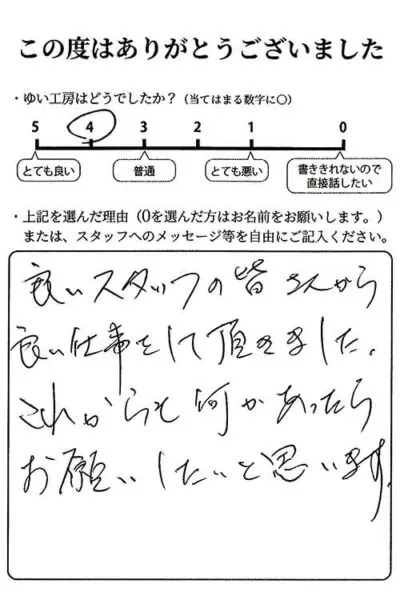 この度はありがとうございました
・ゆい工房はどうでしたか？（当てはまる数字に〇）
5 4 3 2 1 0
とても良い 普通 とても悪い 書ききれないので
直接話したい
・上記を選んだ理由（0を選んだ方はお名前をお願いします。）
または、スタッフへのメッセージ等を自由にご記入ください。
良いスタッフの皆さんから
良い仕事をして頂きました。
これからも何かあったら
お願いしたいと思います。